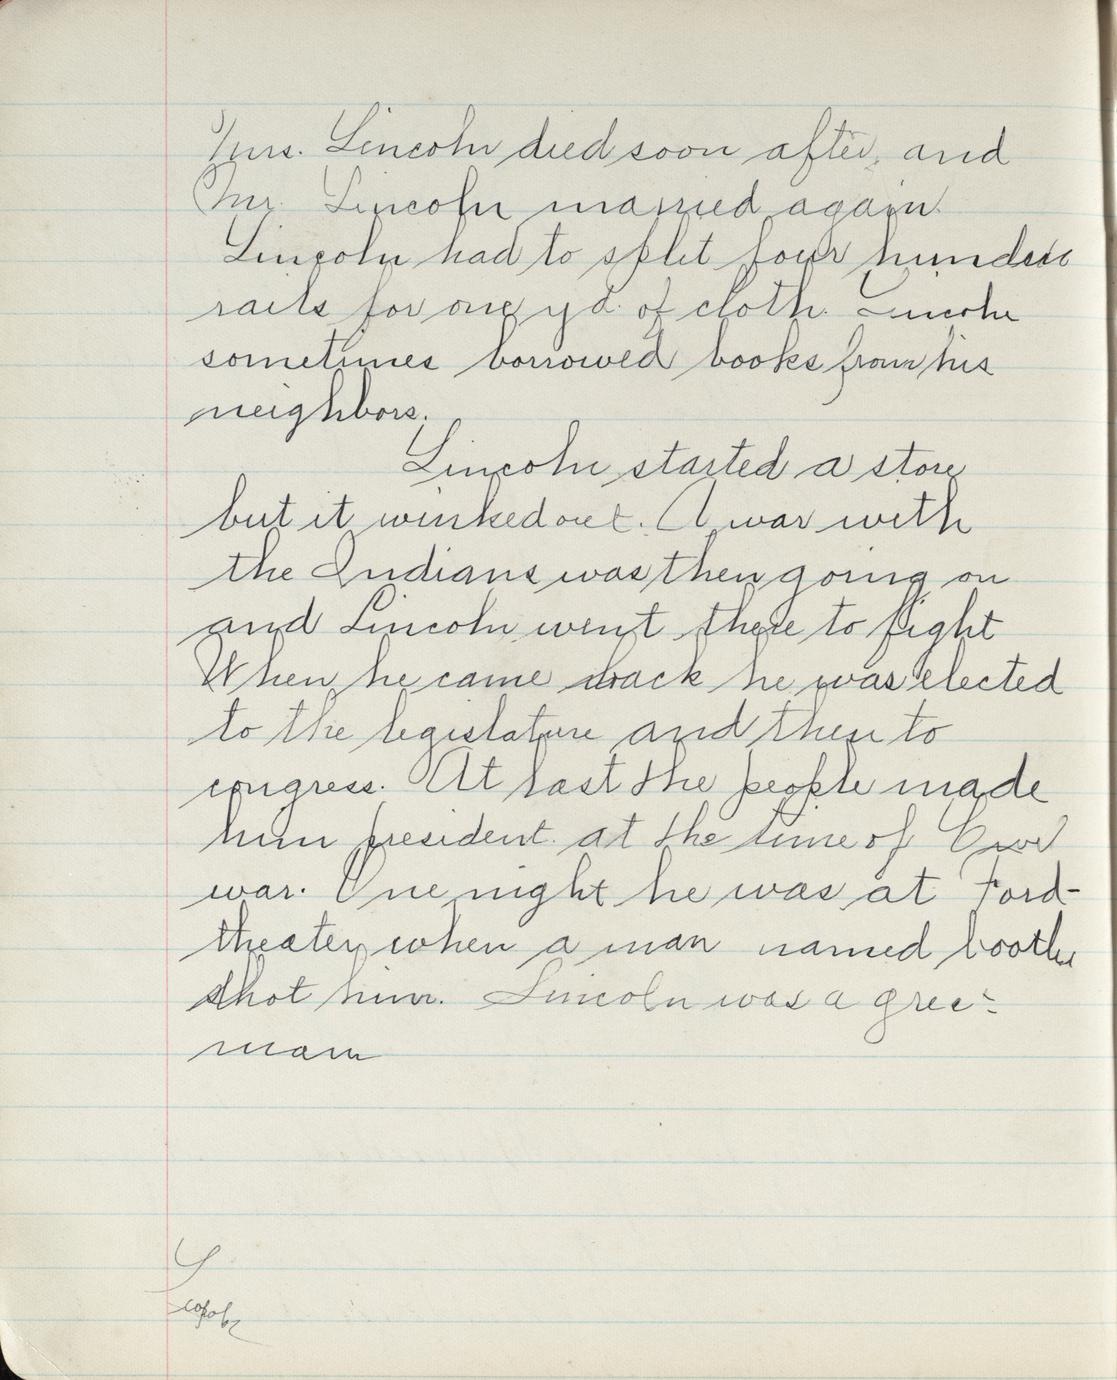 Mrs. Lincoln died soon after, and
Mr. Lincoln married again.
Lincoln had to split four hundred
rails for one yd. of cloth. Lincoln
sometimes borrowed books from his
neighbors.
Lincoln started a store
but it winked out. A war with
the Indians was then going on
and Lincoln went there to fight
When he came back he was elected
to the legislature and then to
congress. At last the people made
him president at the time of Civil
war. One night he was at Ford-
theater when a man named booth
shot him. Lincoln was a great
man